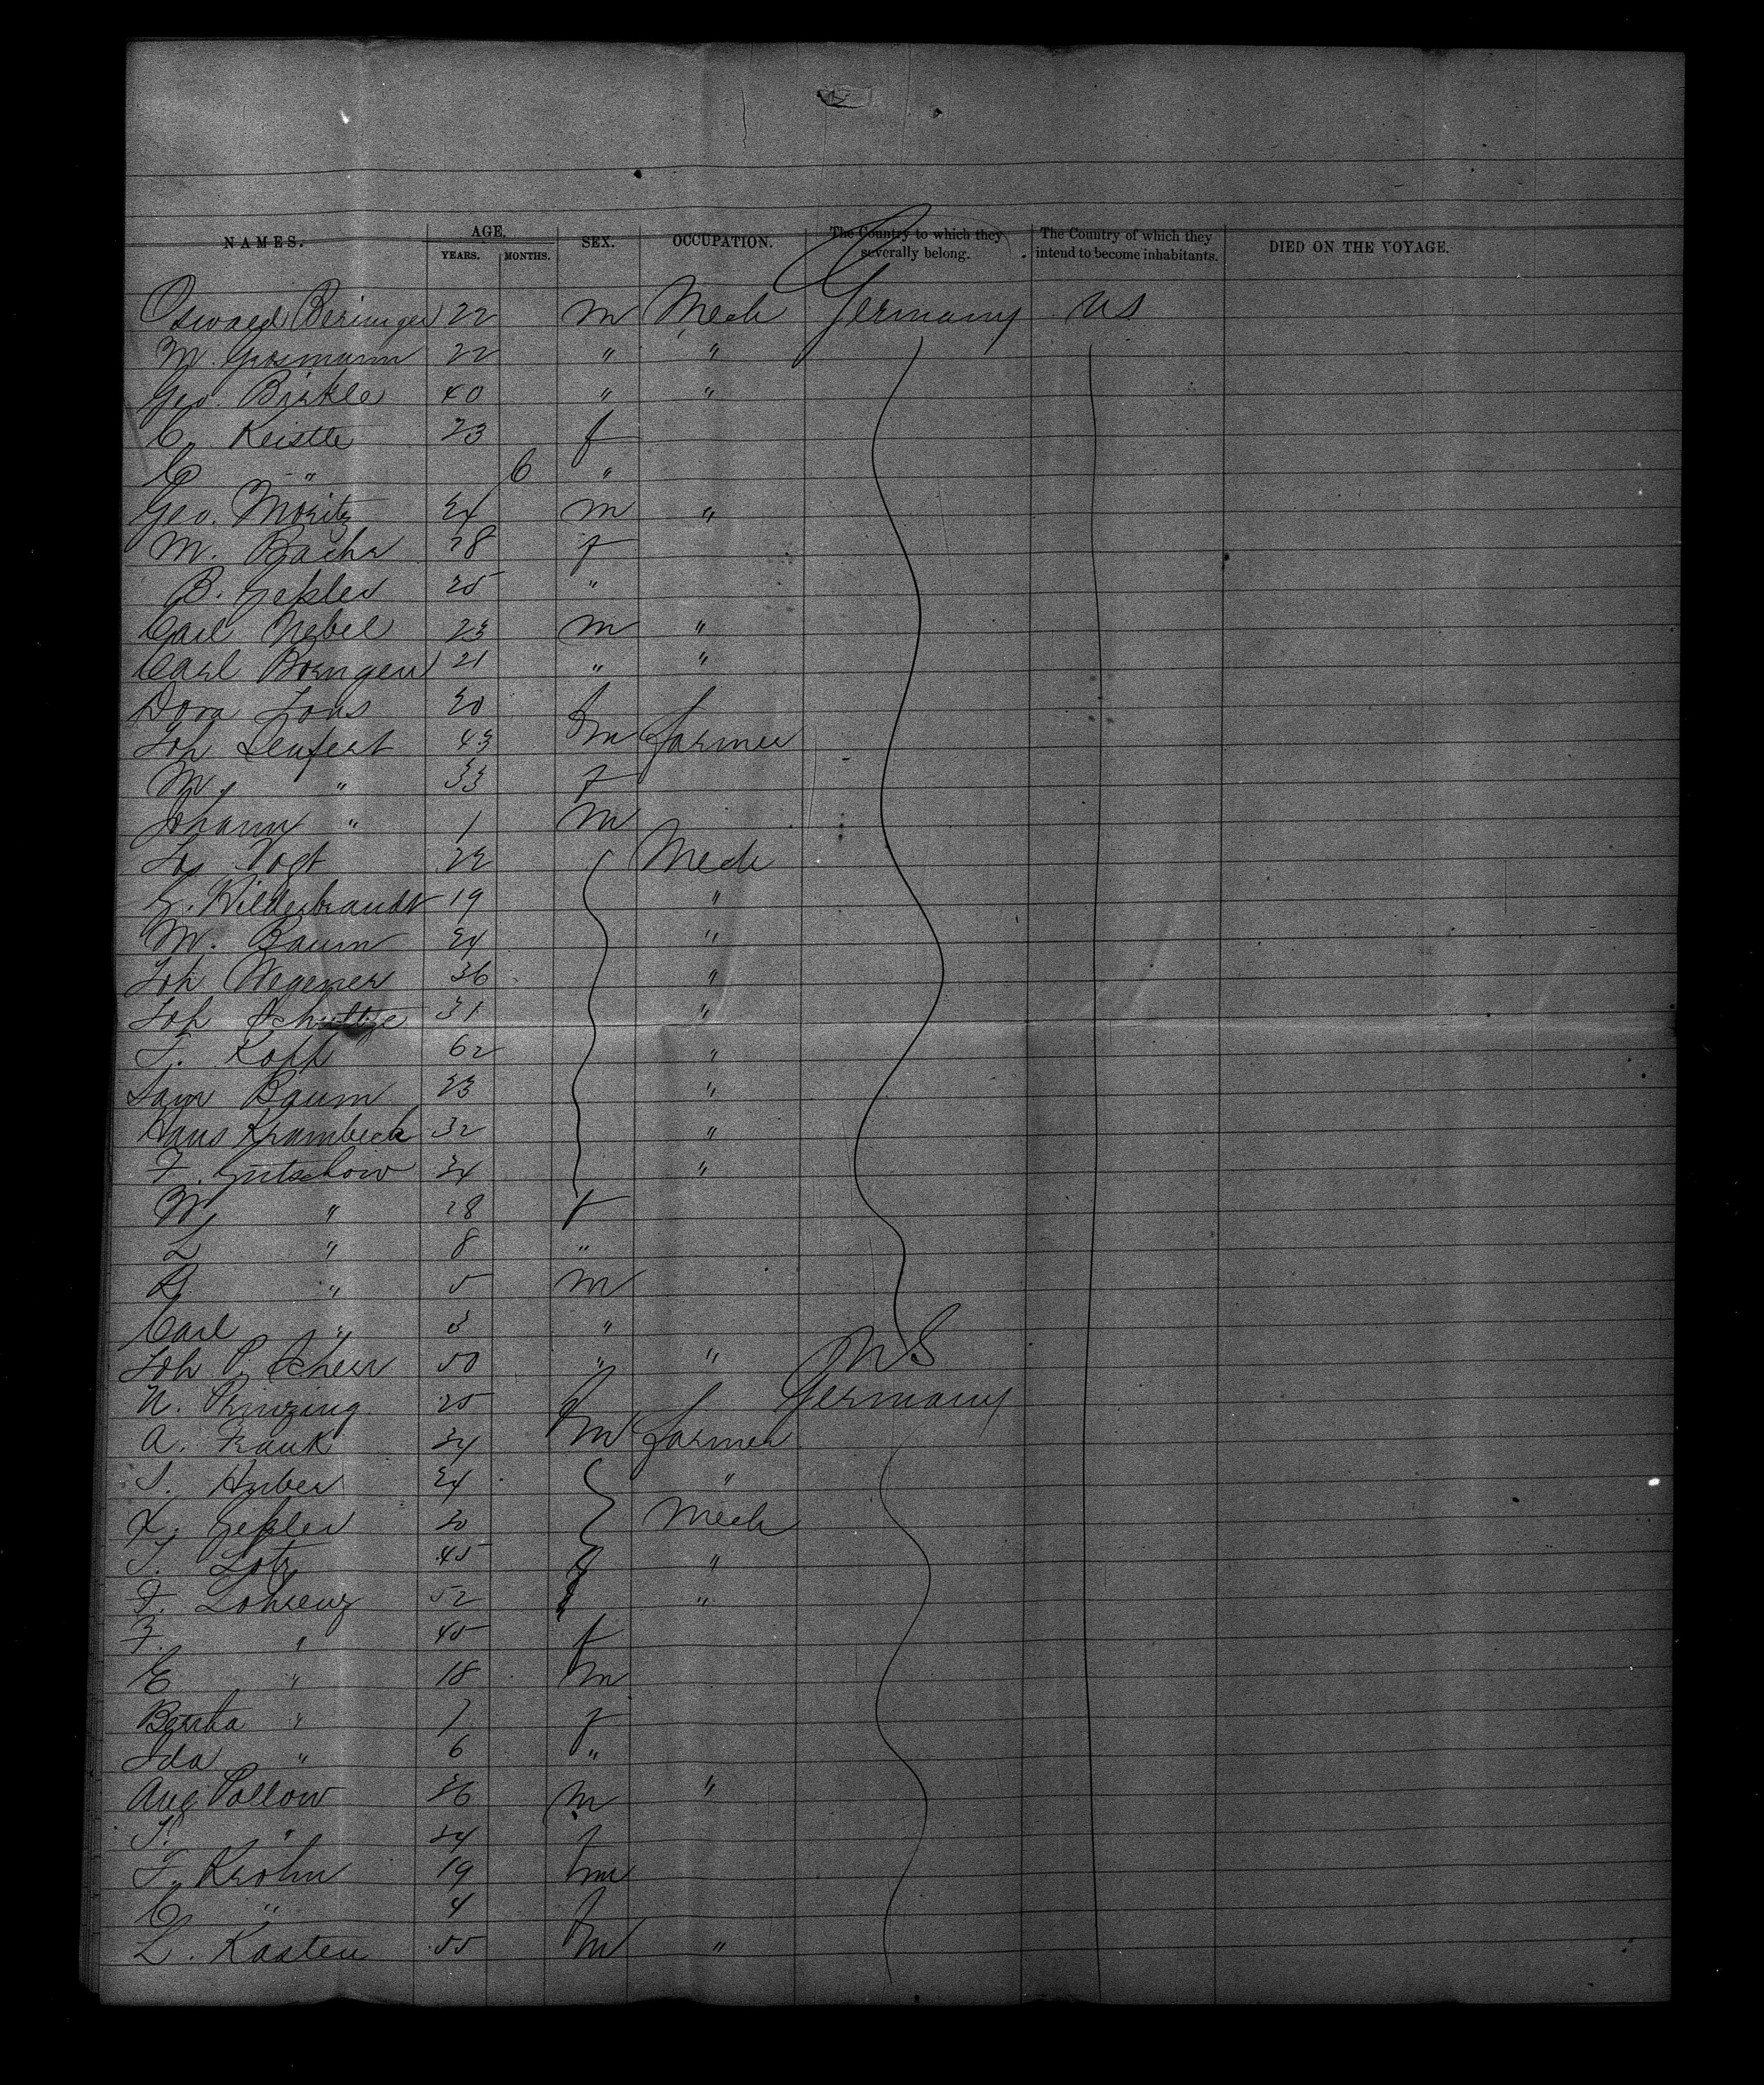 NAMES. AGE. SEX. OCCUPATION. The Country to which they severally belong. The Country of which they intend to become inhabitants. DIED ON THE VOYAGE.
YEARS. MONTHS.
Oswald Beringer 22 m Mech Germany US
M. Grosmann 22 " "
Geo. Birkle 40 " "
C. Keistle 23 f
C " 6 "
Geo. Moritz 24 m "
M. Bachr 28 f
B. Gepler 25 "
Carl Nebel 23 m "
Carl Borngen 21 " "
Dora Jons 20 f
Joh Senfert 43 m Farmer
M. " 33 f
Johann " 1 m
Jos Vogt 22 Mech
G. Hilderbrandt 19 "
M. Baum 24 "
Joh Wegener 36 "
Joh Schultze 31 "
T. Kopp 62 "
Sam Baum 23 "
Hans Krambeck 32 "
F. Gutschow 34 "
M " 28 f
L " 8 "
B " 5 m
Carl " 3 "
Joh P. Scheer 50 " " US
U. Prinzing 25 f Germany
A. Frank 34 m Farmer
S. Huber 24 "
X. Gepler 30 Mech
T. Lotz 45 "
F. Lohrenz 52 "
F. " 45 f
E " 18 m
Bertha " 7 f
Ida " 6 "
Aug Pollow 36 m "
T. " 34 f
T. Krohn 19 m
C " 4 f
L. Kasten 55 m "